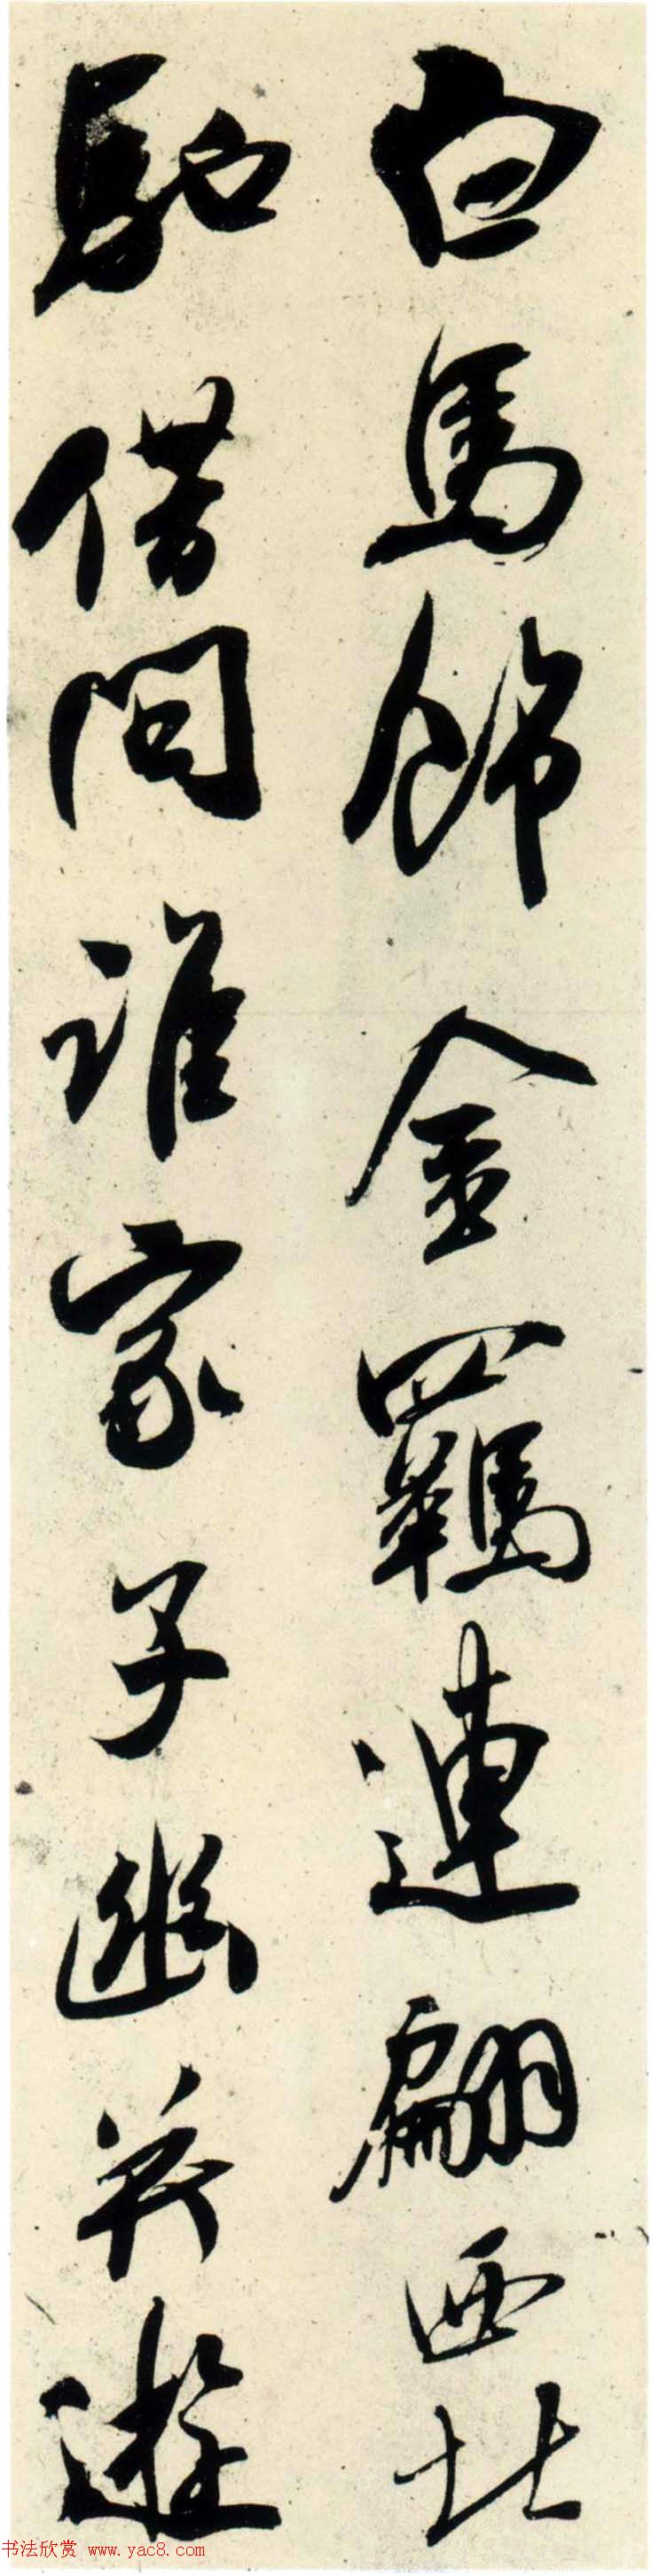 白馬飾金羈連翩西北
馳借問誰家子幽并遊
书法欣赏 www.yac8.com